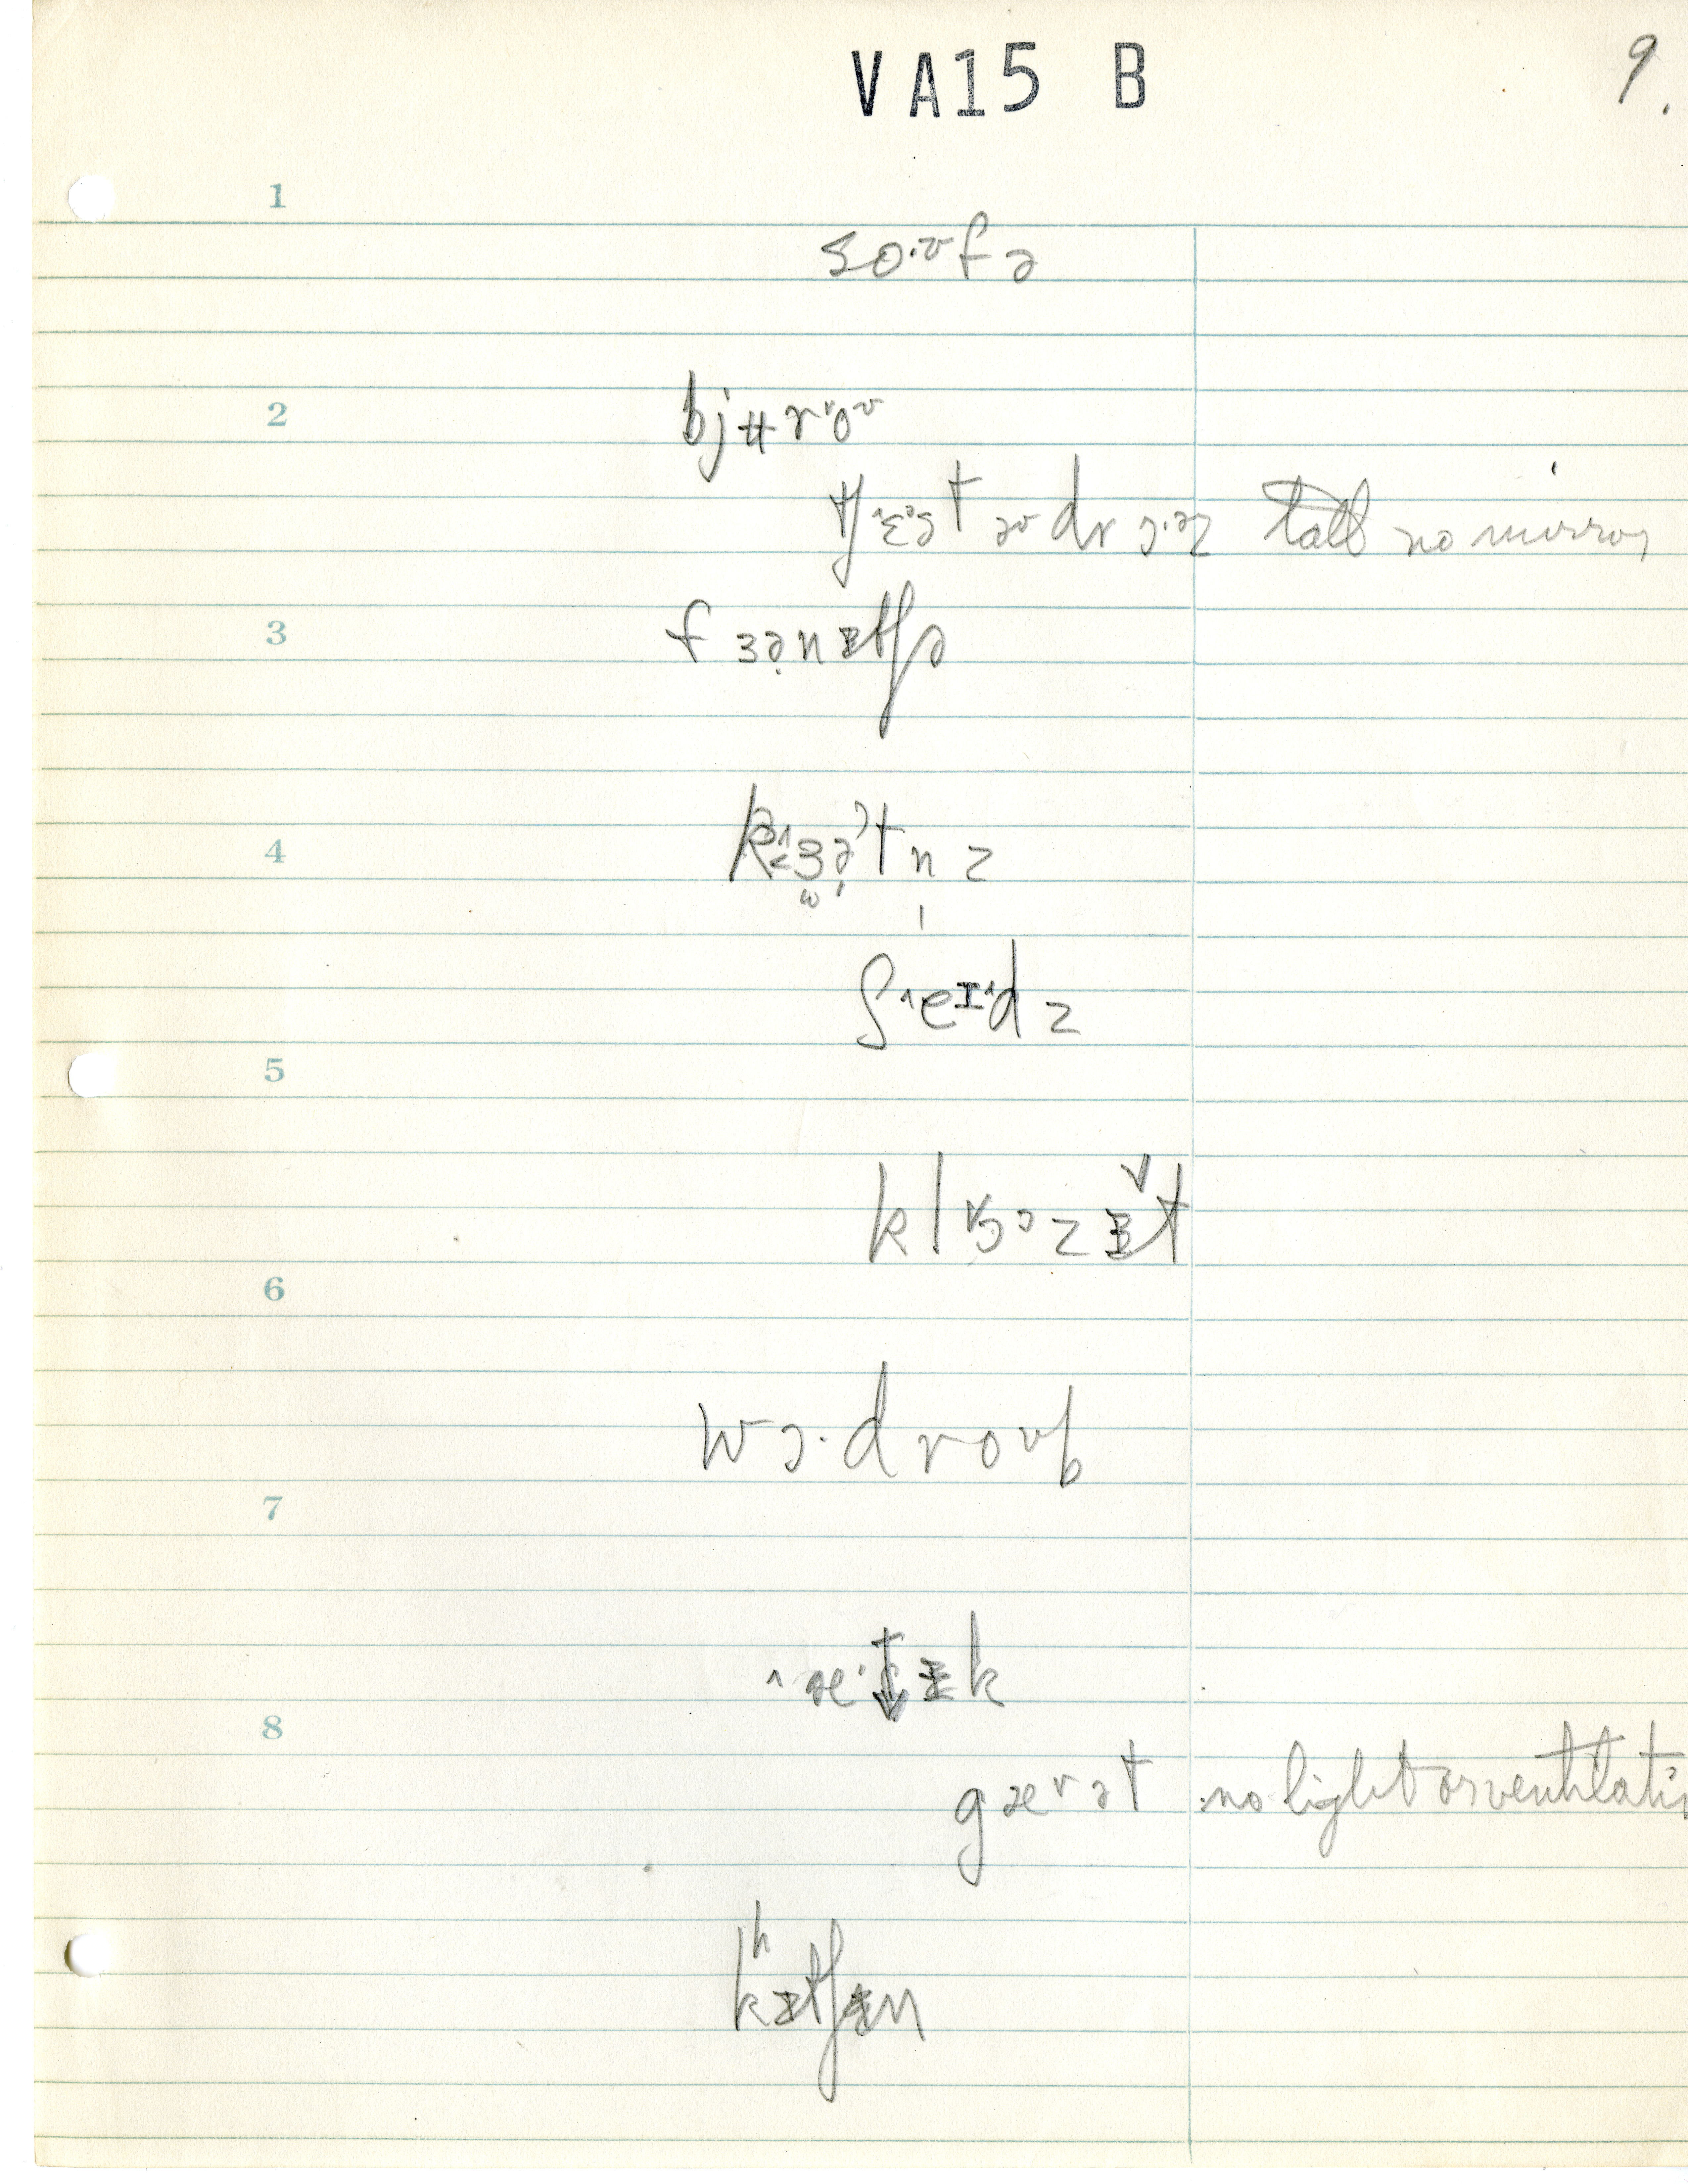 VA15 B
9.
1
so·ʊfə
2
bjʉr˅oʊ
tʃ˄ɛət əʊ drɔ·əz tall no mirror
3
fɜənɪtʃə
4
k˂ɜətnz
ʃ˄eɪ˄dz
5
klɔəzɪt
6
wɔ·droʊb
7
8
gærət no light or ventilatio
kʰɪtʃɪn